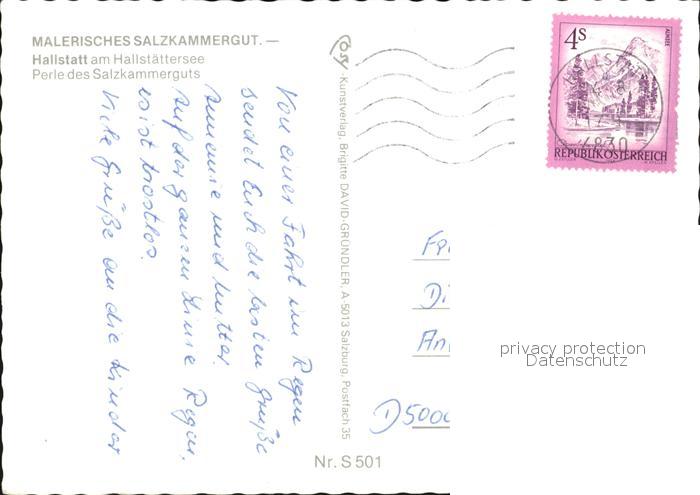 MALERISCHES SALZKAMMERGUT. —
Hallstatt am Hallstättersee
Perle des Salzkammerguts
Von einer Fahrt im Regen
sendet Euch die besten Grüße
Annemie und Mutter.
Auf der ganzen Linie Regen.
es ist trostlos.
Viele Grüße an die Kinder
Kunstverlag, Brigitte DAVID-GRÜNDLER, A-5013 Salzburg, Postfach 35
Nr. S 501
4S
ALMSEE
HALLSTATT
4830
REPUBLIK ÖSTERREICH
D 5000
privacy protection
Datenschutz